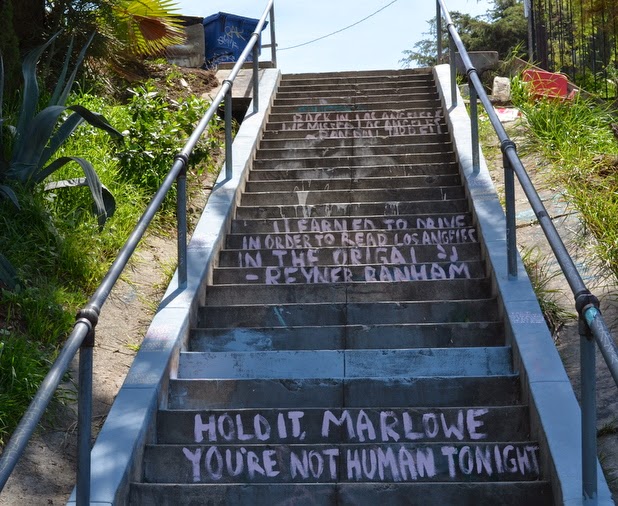 BACK IN LOS ANGELES
WE MISSED LOS ANGELES
I LEARNED TO DRIVE
IN ORDER TO READ LOS ANGELES
IN THE ORIGAI
- REYNER BANHAM
HOLD IT, MARLOWE
YOU'RE NOT HUMAN TONIGHT